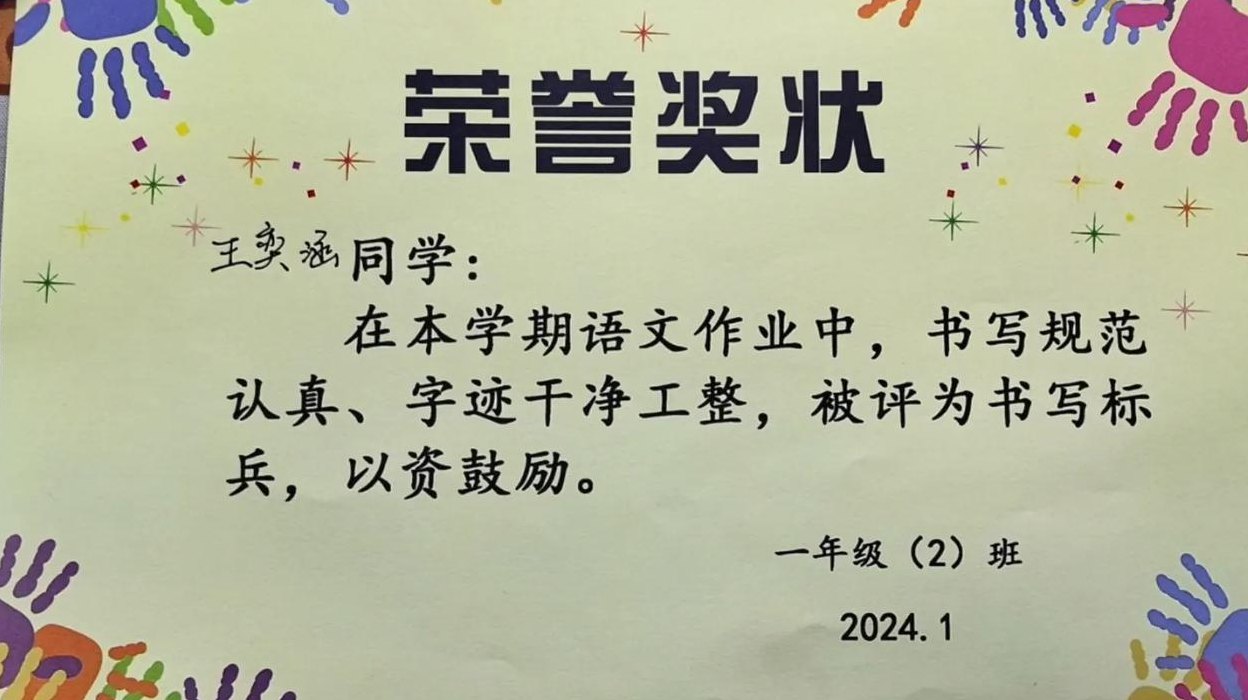 荣誉奖状
王奕涵同学：
在本学期语文作业中，书写规范
认真、字迹干净工整，被评为书写标
兵，以资鼓励。
一年级（2）班
2024.1